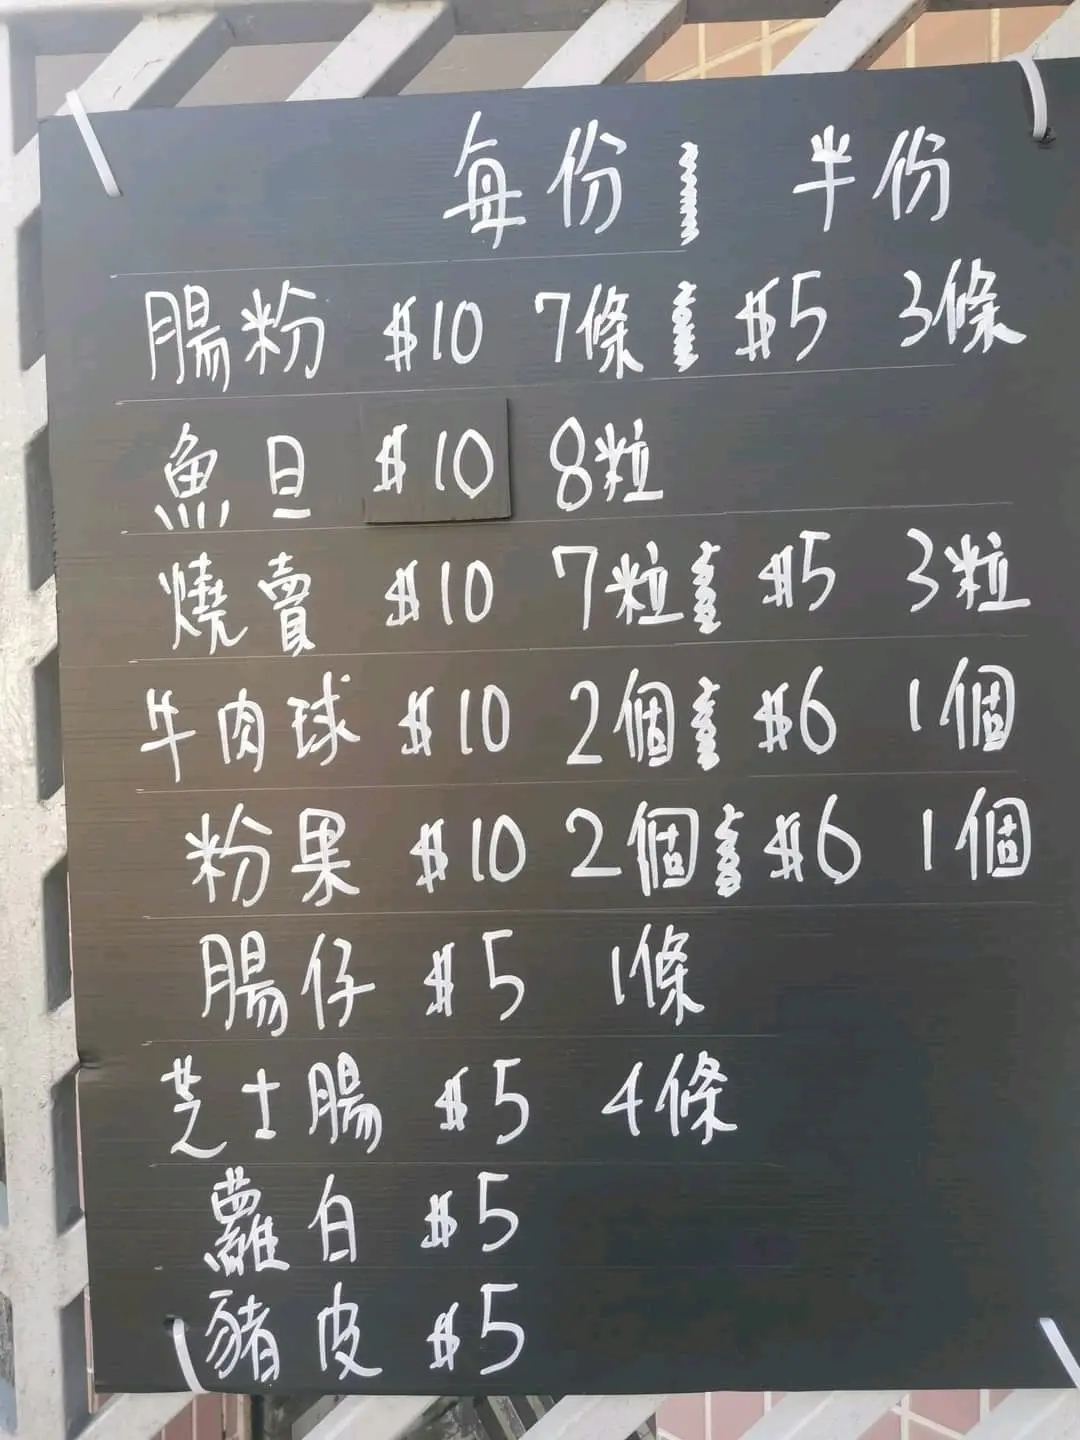 每份 半份
腸粉 $10 7條 $5 3條
魚旦 $10 8粒
燒賣 $10 7粒 $5 3粒
牛肉球 $10 2個 $6 1個
粉果 $10 2個 $6 1個
腸仔 $5 1條
芝士腸 $5 4條
蘿白 $5
豬皮 $5